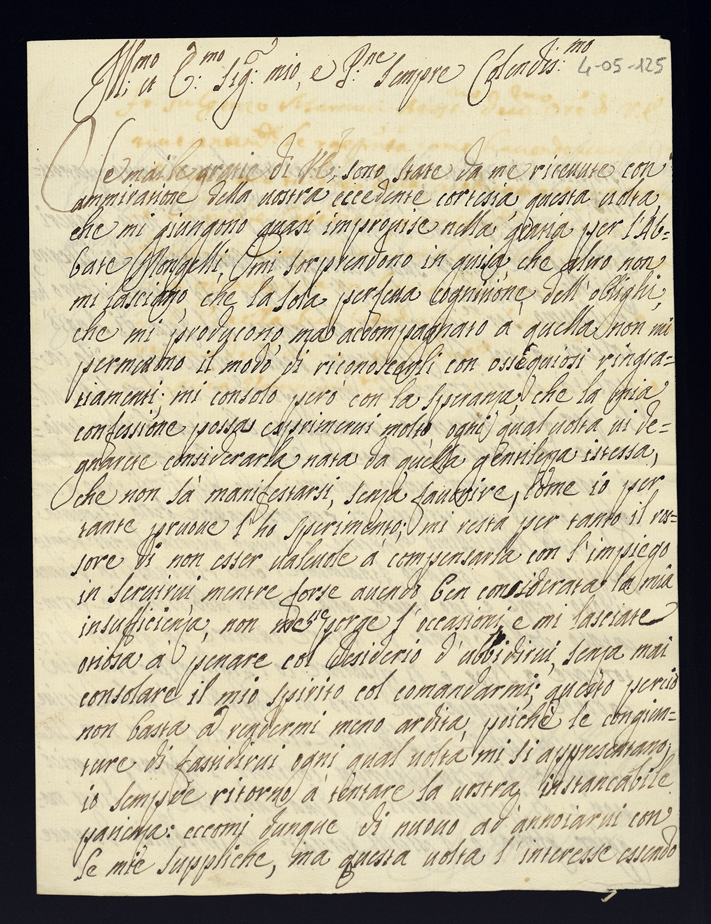 Ill:mo et E:mo Sig:r mio, e P:ne sempre Colendis:mo
4-05-125
Se mai le gratie di V.E. sono state da me riceuute con
ammiratione della uostra eccedente cortesia, questa uolta,
che mi giungono quasi improuise nella gratia per l'Ab=
bate Mongelli, mi sorprendono in guisa, che altro non
mi lasciano, che la sola perfetta cognitione dell'oblighi,
che mi producono ma accompagnato a quella non mi
permettono il modo di riconoscergli con ossequiosi ringra=
tiamenti; mi consolo però con la speranza, che la mia
confusione possa esprimerui molto ogni qual uolta ui de=
gnarete considerarla nata da quella gentilezza istessa,
che non sà manifestarsi, senza fauorire, come io per
tante pruoue l'ho sperimento; mi resta per tanto il ros=
sore di non esser ualeuole a compensarla con l'impiego
in seruirui mentre forse auendo ben considerata la mia
insufficienza, non me ne porge l'occasioni, e mi lasciate
otiosa a penare col desiderio d'ubbidirui, senza mai
consolare il mio spirito col comandarmi; questo perciò
non basta a rendermi meno ardita, poiche le congiun=
ture di fastidirui ogni qual uolta mi si appresentano,
io sempre ritorno a tentare la uostra instancabile
patienza: eccomi dunque di nuouo ad annoiarui con
le mie suppliche, ma questa uolta l'interesse essendo